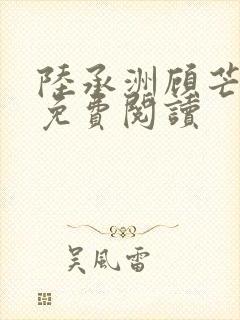 陸承洲顾芒
免費閱讀
吴風雷